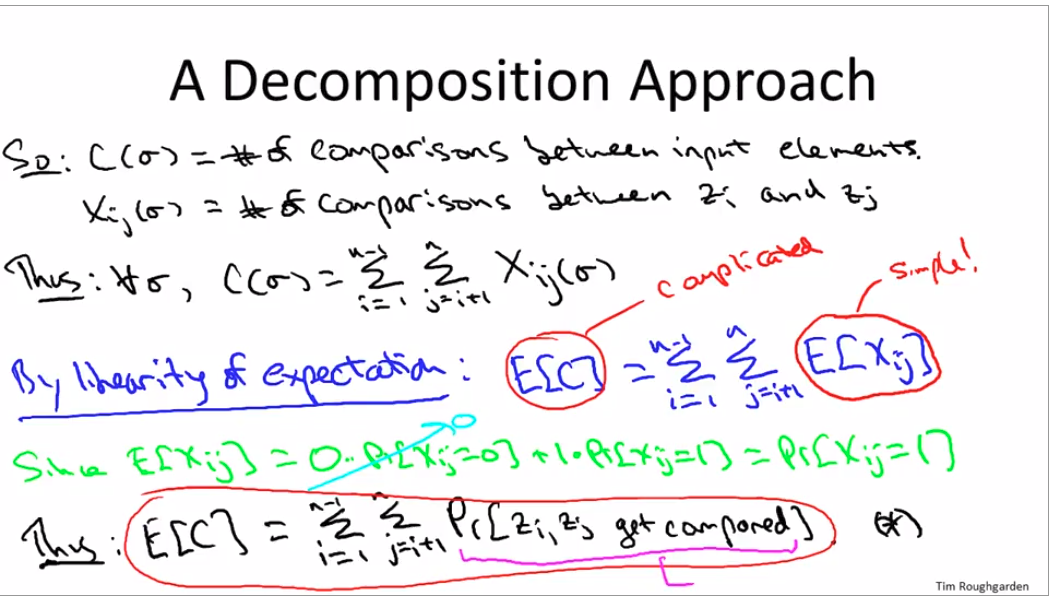 A Decomposition Approach
So: C(σ) = # of comparisons between input elements.
Xij(σ) = # of comparisons between zi and zj
Thus: ∀σ, C(σ) = ∑_{i=1}^{n-1} ∑_{j=i+1}^{n} Xij(σ)
complicated
simple!
By linearity of expectation: E[C] = ∑_{i=1}^{n-1} ∑_{j=i+1}^{n} E[Xij]
0
Since E[Xij] = 0·Pr[Xij=0] + 1·Pr[Xij=1] = Pr[Xij=1]
Thus: E[C] = ∑_{i=1}^{n-1} ∑_{j=i+1}^{n} Pr[zi, zj get compared] (*)
Tim Roughgarden